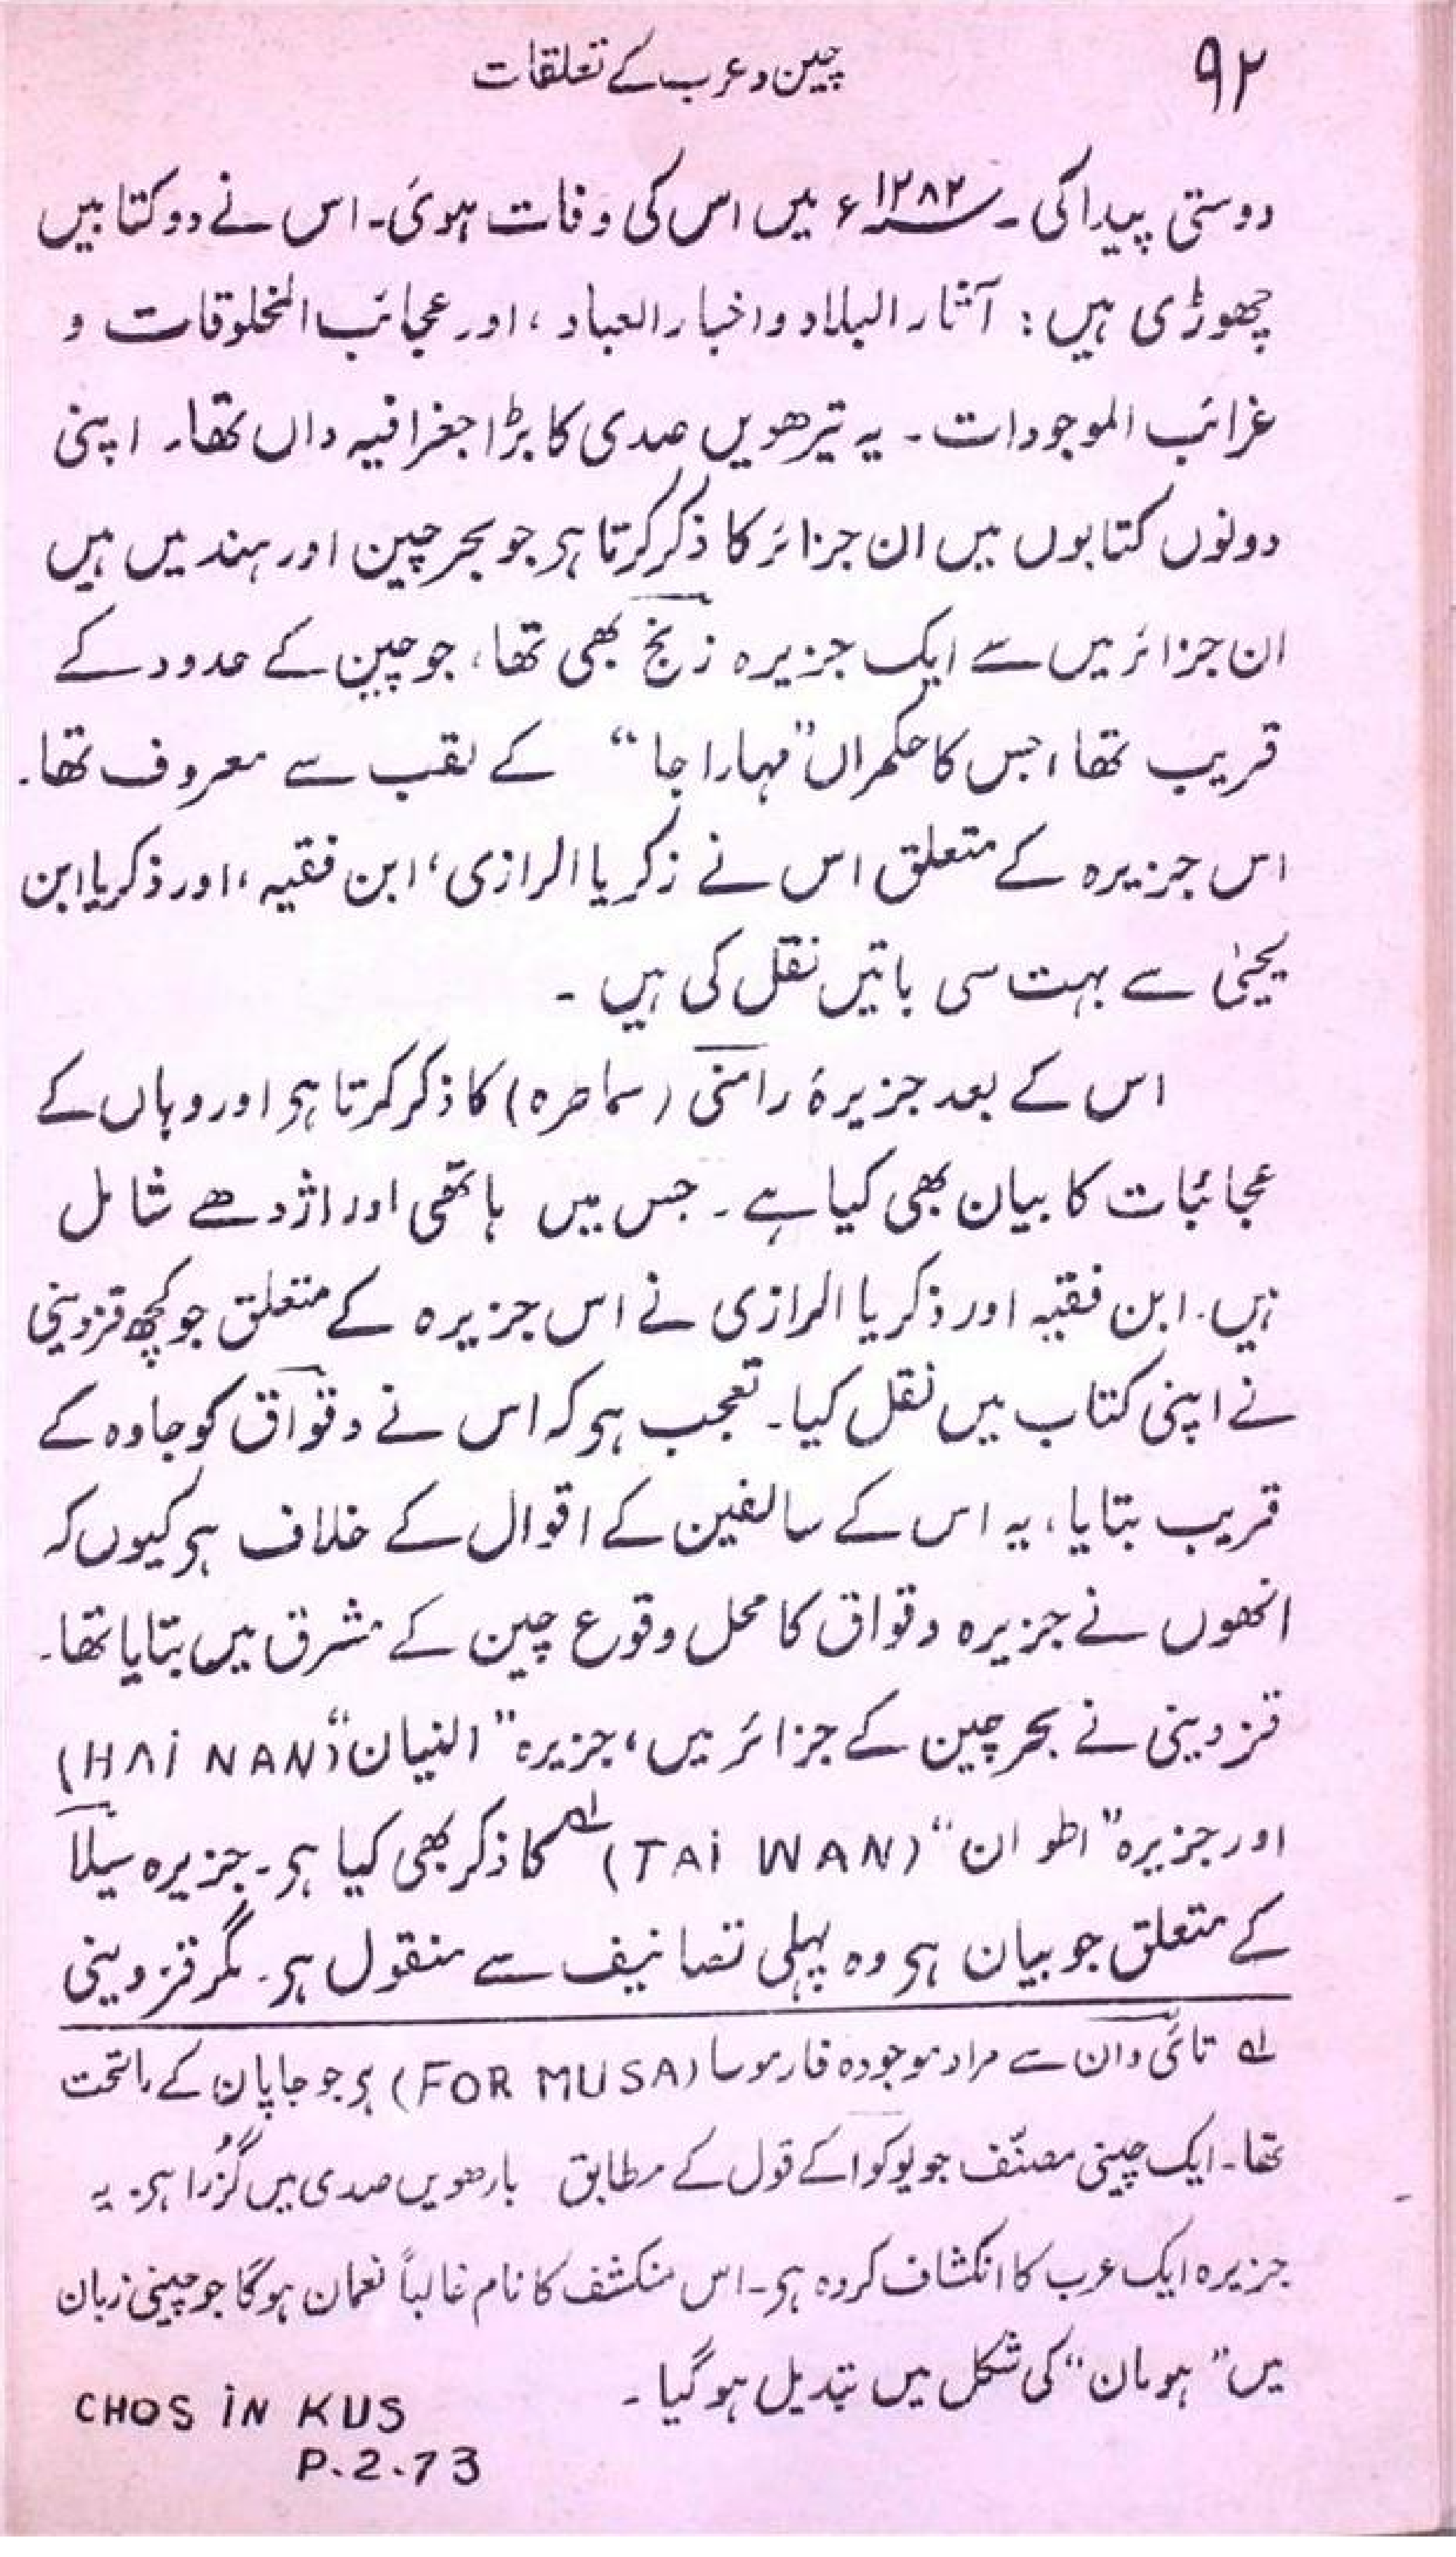 ۹۲
چین و عرب کے تعلقات
دوستی پیدا کی۔ ۱۲۸۲ء میں اس کی وفات ہوئی۔ اس نے دو کتابیں
چھوڑی ہیں: آثار البلاد و اخبار العباد، اور عجائب المخلوقات و
غرائب الموجودات۔ یہ تیرھویں صدی کا بڑا جغرافیہ داں تھا۔ اپنی
دونوں کتابوں میں ان جزائر کا ذکر کرتا ہی جو بحر چین اور ہند میں ہیں
ان جزائر میں سے ایک جزیرہ زنج بھی تھا، جو چین کے حدود کے
قریب تھا، جس کا حکمراں "مہاراجا" کے لقب سے معروف تھا۔
اس جزیرہ کے متعلق اس نے زکریا الرازی، ابن فقیہ، اور ذکریا ابن
یحییٰ سے بہت سی باتیں نقل کی ہیں ۔
اس کے بعد جزیرۂ رامنی (سماطرہ) کا ذکر کرتا ہی اور وہاں کے
عجائبات کا بیان بھی کیا ہے ۔ جس میں ہاتھی اور اژدھے شامل
ہیں۔ ابن فقیہ اور ذکریا الرازی نے اس جزیرہ کے متعلق جو کچھ قزوینی
نے اپنی کتاب میں نقل کیا۔ تعجب ہی کہ اس نے وقواق کو جاوہ کے
قریب بتایا، یہ اس کے سالفین کے اقوال کے خلاف ہی کیوں کہ
انھوں نے جزیرہ وقواق کا محل وقوع چین کے مشرق میں بتایا تھا۔
قزوینی نے بحر چین کے جزائر میں، جزیرہ "النیان" (HAI NAN)
اور جزیرہ "اطوان" (TAI WAN)لہ کا ذکر بھی کیا ہی۔ جزیرہ سیلا
کے متعلق جو بیان ہی وہ پہلی تصانیف سے منقول ہی۔ مگر قزوینی
لہ تائی وان سے مراد موجودہ فارموسا (FOR MUSA) ہی جو جاپان کے ماتحت
تھا۔ ایک چینی مصنّف جویوکوا کے قول کے مطابق بارھویں صدی میں گُزرا ہی۔ یہ
جزیرہ ایک عرب کا انکشاف کردہ ہی۔ اس منکشف کا نام غالباً نعمان ہوگا جو چینی زبان
میں "ہومان" کی شکل میں تبدیل ہوگیا ۔
CHOS IN KUS
P.2.73